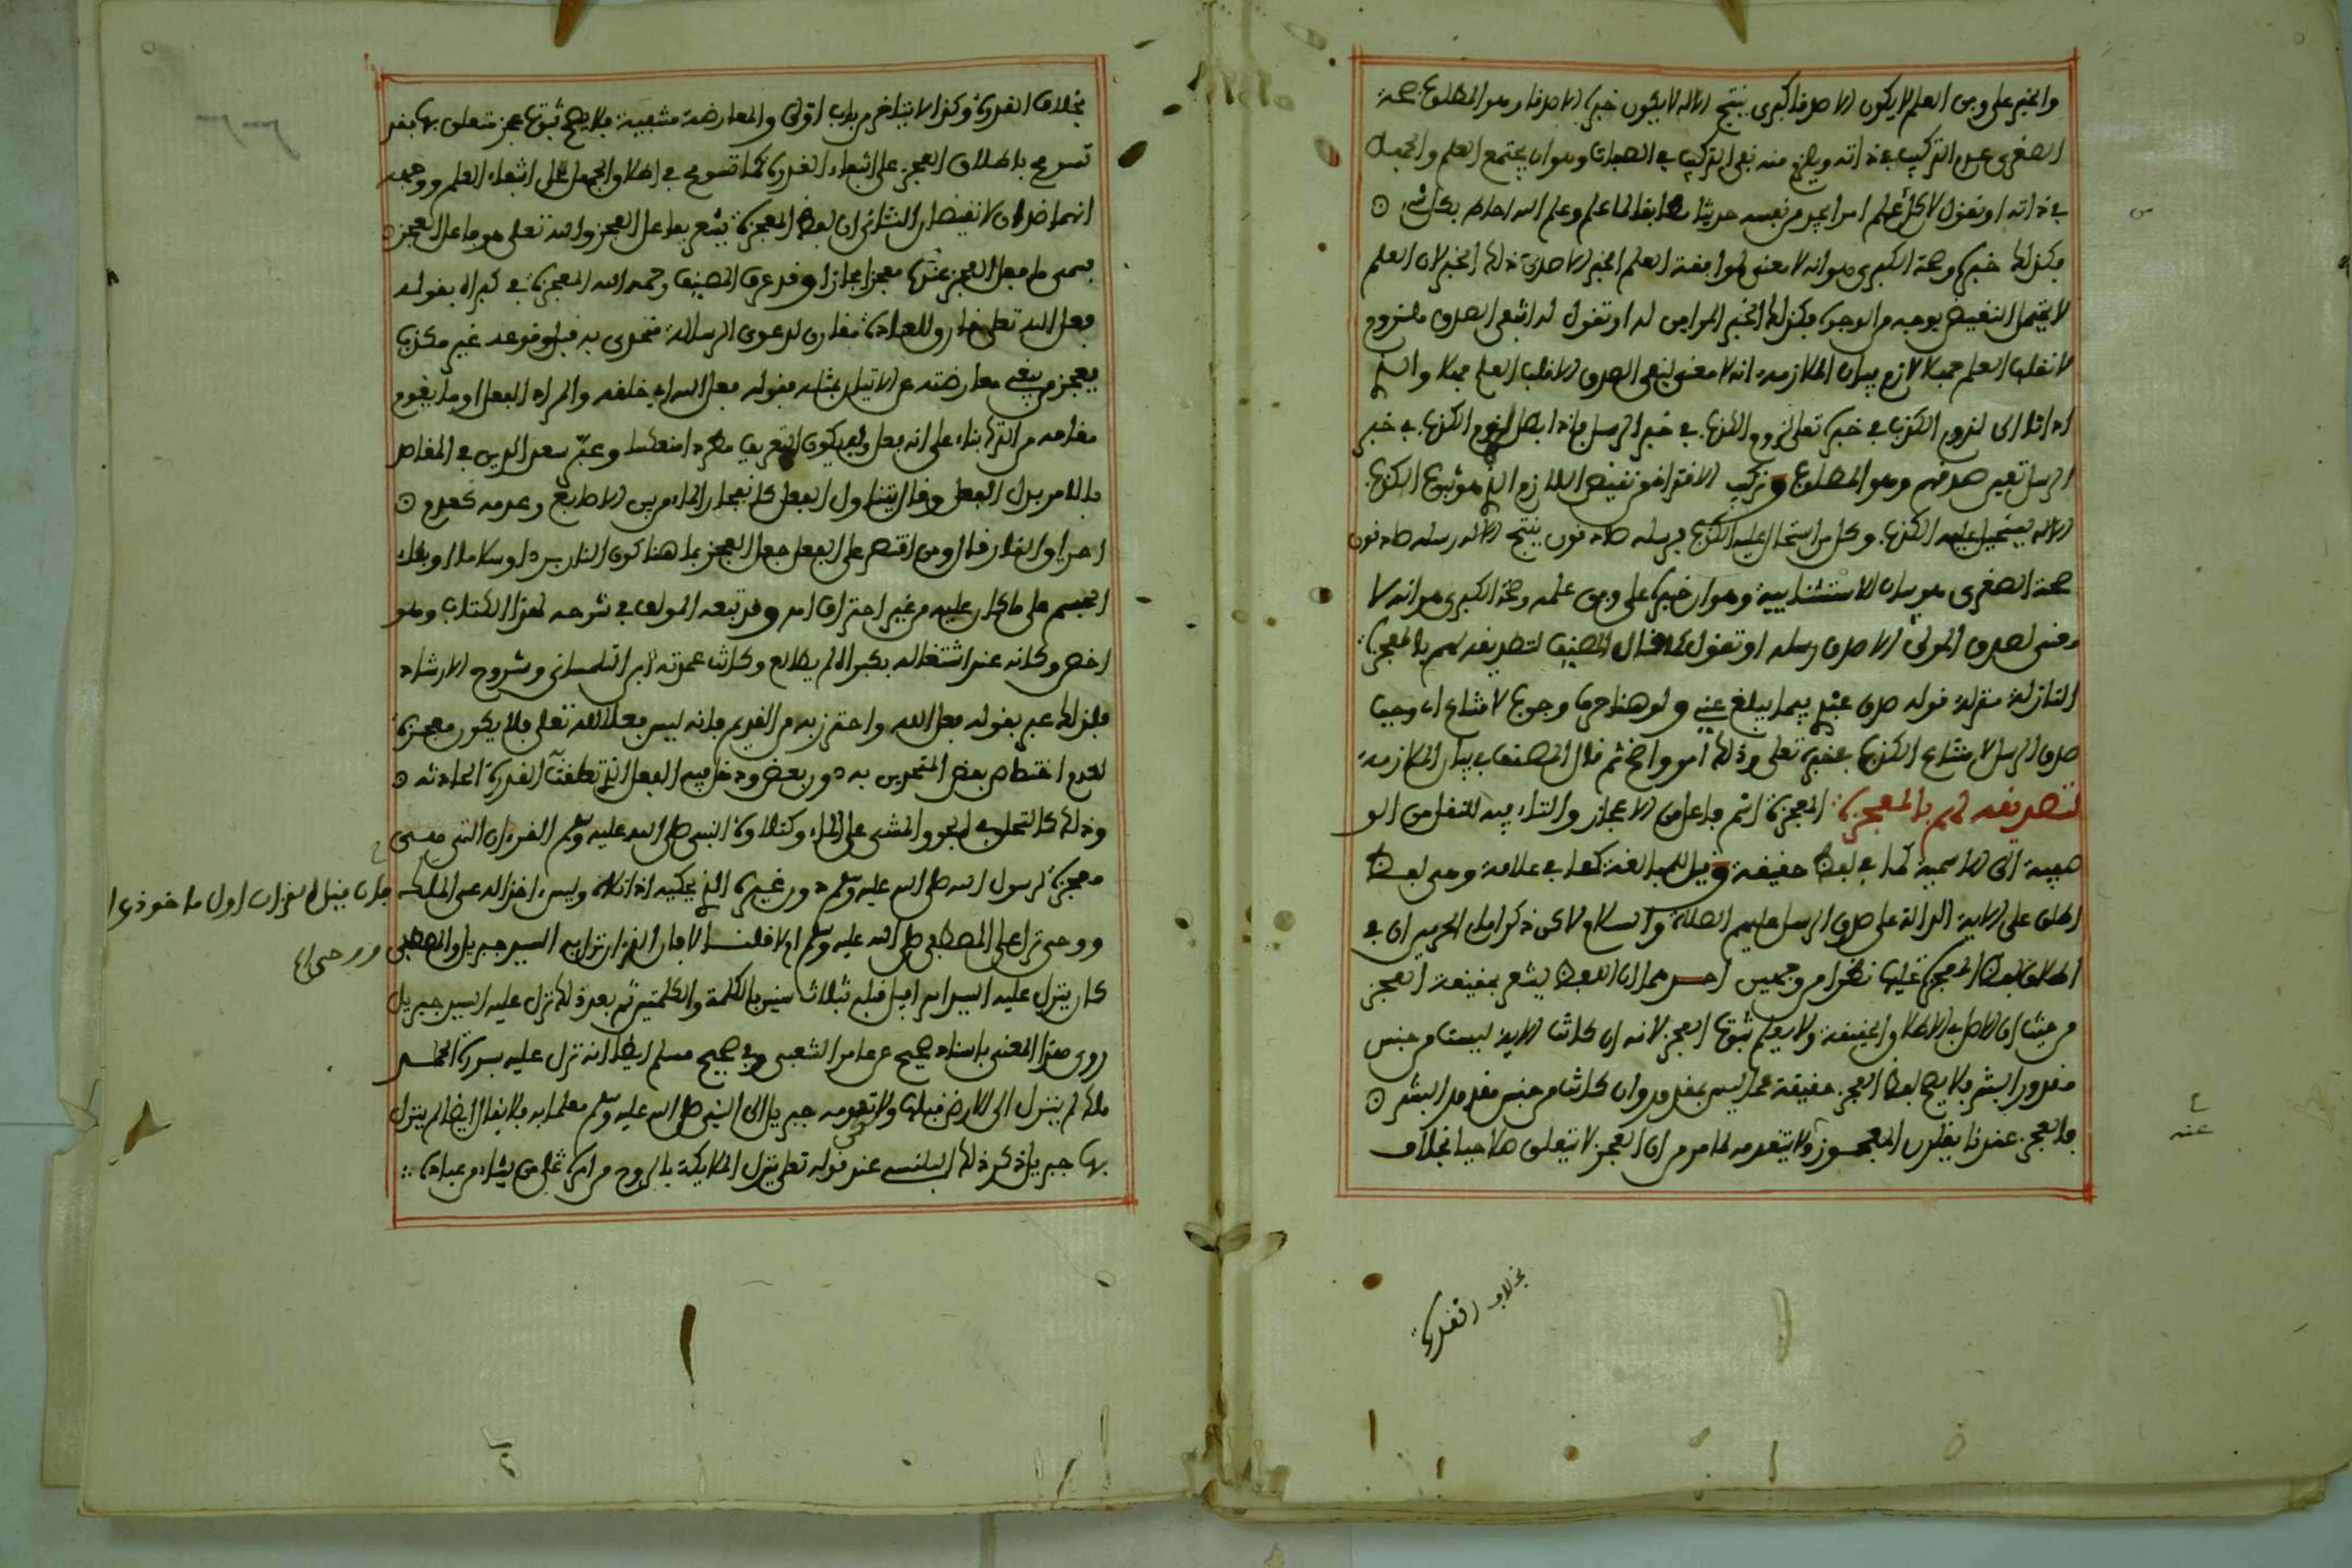 والخبر على وفق العلم لا يكون الا صدقا كبرى ينتج الاله لا يكون خبره الا صدقا وهو المطلوب صحة
الصغرى عدم التركيب في ذاته ويلزم منه نفي التركيب في الصفات وهو ان يجتمع العلم والجهل
في ذاته او نقول لان كل عالم امرا يجد من نفسه حديثا مطابقا لما علم وعلم الله احاط بكل شيء
فكذلك خبره وصحة الكبرى هو انه لا معنى لموافقة العلم الخبر الا صدق ذلك الخبر لان العلم
لا يحتمل النقيض بوجه من الوجوه فكذلك الخبر الموافق له او تقول لو انتفى الصدق فلنزوم
لا نقلب العلم جهلا لازم بيان الملازمة انه لا معنى لنفي الصدق الا قلب العلم جهلا والى
اذا ادى لزوم الكذب في خبره تعالى لزوم الكذب في خبر الرسل فاذا ابطل لزوم الكذب في خبر
الرسل تعين صدقهم وهو المطلوب وتركيب الاقتراني نقيض اللازم الذي هو ثبوت الكذب
الاله يستحيل عليه الكذب وكل من استحال عليه الكذب فرسله صادقون ينتج الاله رسله صادقون
صحة الصغرى هو بيان الاستثنائية وهو ان خبره على وفق علمه وصحة الكبرى هو انه لا
معنى لصدق المولى الا صدق رسله او تقول كما قال المصنف لتصديقه لهم بالمعجزة
النازلة منزلة قوله صدق عبدي فيما يبلغ عني ولو هنا حرف وجوب لامتناع اي وجب
صدق الرسل لامتناع الكذب في خبره تعالى وذلك امر واضح ثم قال المصنف في بيان الملازمة
لتصديقه لهم بالمعجزة المعجزة اسم فاعل من الاعجاز والتاء فيه للنقل من الو
صفية الى الاسمية كما في لفظ حقيقة وقيل للمبالغة كما في علامة وهي لفظ
اطلق على الاية الدالة على صدق الرسل عليهم الصلاة والسلام لكن ذكر امام الحرمين ان في
اطلاق لفظ المعجزة عليها نظرا من وجهين احدهما ان اللفظ يشعر بحقيقة العجز
من حيث ان الاصل في الاطلاق الحقيقة ولا يعلم ثبوت العجز لانه ان كانت الاية ليست من جنس
مقدور البشر فلا يصح لفظ العجز حقيقة عما ليس بمقدور وان كانت من جنس مقدور البشر
فالعجز عندنا يقارن المعجوز ولا يتقدمه لما مر من ان العجز لا يتعلق صلاحيا بخلاف
عنه
بخلاف القدرة
بخلاف القدرة وكذا لا يتاخر من باب اولى والمعارضة منتفية فلا يصح ثبوت عجز متعلق بها فقد
تسومح باطلاق العجز على انتفاء القدرة كما تسومح في اطلاق الجهل على انتفاء العلم ووجه
انهما ضدان لا نقيضان الثاني ان لفظ المعجزة يشعر بفاعل العجز والله تعالى هو فاعل العجز
فسمى ما فعل العجز عنده معجزا مجازا وقد عرف المصنف رحمه الله المعجزة في كبراه بقوله
فعل الله تعالى خارق للعادة مقارن لدعوى الرسالة متحدى به قبل وقوعه غير مكذب
يعجز من يبغي معارضته عن الاتيان بمثله فقوله فعل الله اي خلقه والمراد الفعل او ما يقوم
مقامه من الترك بناء على انه فعل وليكون التعريف مطردا منعكسا وعبر سعد الدين في المقاصد
بالامر بدل الفعل وقال يتناول الفعل كانفجار الماء من بين الاصابع وعدمه كعدم
احراق النار قال ومن اقتصر على الفعل جعل العجز بما هنا كون النار بردا وسلاما او بقاء
الجسم على ما كان عليه من غير احتراق اه وقد تبعه المولف في شرحه لهذا الكتاب وهو
اخص وكانه عند اشتغاله بكبراه لم يطالع وكانت عمدته ابن التلمساني وشروح الارشاد
فلذلك عبر بقوله فعل الله واحترز به من القديم فانه ليس فعلا لله تعالى فلا يكون معجزة
لعدم اختصاص بعض المتحدين به دون بعض ودخل فيه الفعل الذي تعلقت القدرة الحادثة
وذلك كالتحليق في الجو والمشي على الماء وكتلاوة النبي صلى الله عليه وسلم القرءان التي هي
معجزة لرسول الله صلى الله عليه وسلم دون غيره الذي يحكيه اذا تلاه وليس اخذ اله عن الملك
ووحي نزل على المصطفى صلى الله عليه وسلم اولا قلنا لا فان القرءان نزل به السيد جبريل والمصطفى
كان ينزل عليه السيد اسرافيل قبله بثلاث سنين بالكلمة والكلمتين ثم بعد ذلك نزل عليه السيد جبريل
روى هذا المعنى باسناد صحيح عن عامر الشعبي وفي صحيح مسلم ايضا انه نزل عليه بسورة الحمد
ملك لم ينزل الى الارض قبلها ولا تقدمه جبريل الى النبي صلى الله عليه وسلم معلما به فلا يقال ايضا لم ينزل
بها جبريل ذكر ذلك البلنسي عند قوله تعالى ينزل الملايكة بالروح من امره على من يشاء من عباده
فان قيل القرءان اول ماخوذ
ووحي